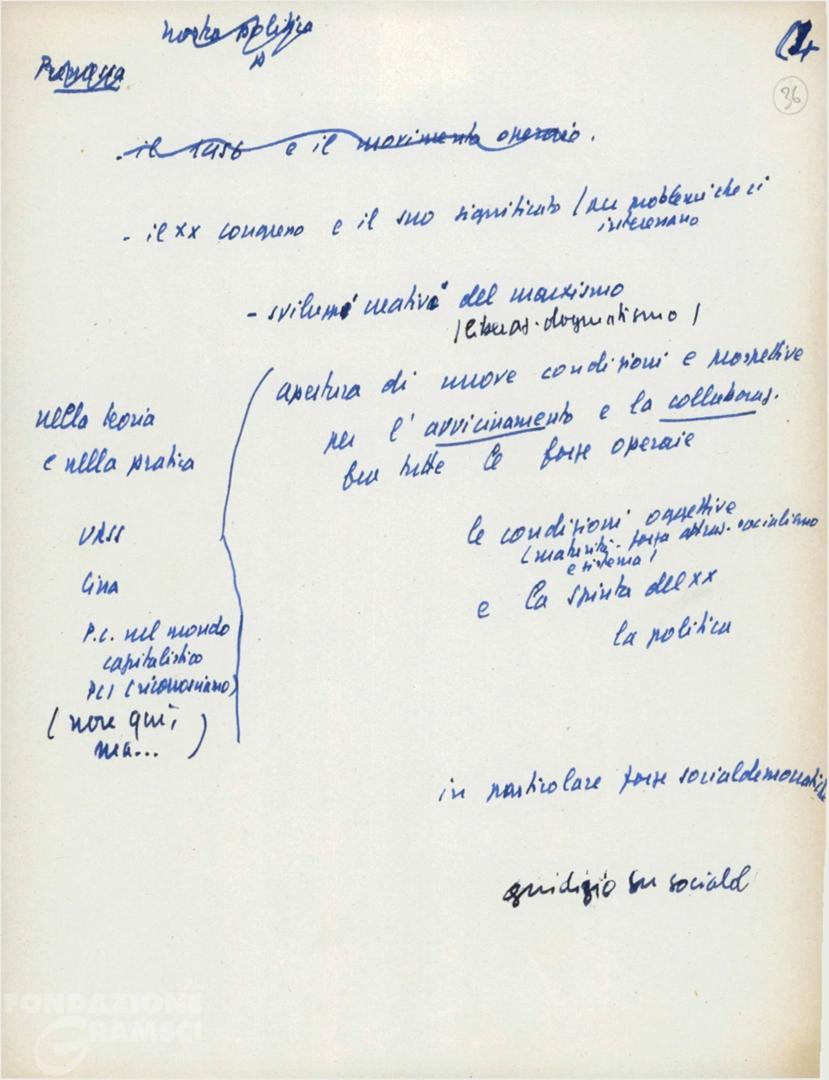 nostra politica
Premessa
36
- il 1956 e il movimento operaio.
- il XX congresso e il suo significato (sui problemi che ci
interessano
- sviluppo creativo del marxismo
(liberaz. dogmatismo)
apertura di nuove condizioni e prospettive
per l'avvicinamento e la collaboraz.
fra tutte le forze operaie
nella teoria
e nella pratica
URSS
Cina
P.C. nel mondo
capitalistico
PCI (riconosciamo)
(non qui,
ma...)
le condizioni oggettive
(maturità - forza attraz. socialismo
e sistema)
e la spinta del XX
la politica
in particolare forze socialdemocratiche
giudizio su sociald
FONDAZIONE
GRAMSCI